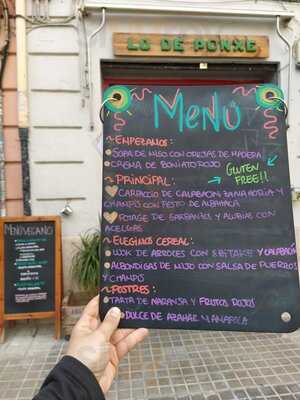 LO DE PONXE
MENÚ
EMPEZAMOS:
SOPA DE MISO CON OREJAS DE MADERA
CREMA DE BONIATO ROJO
GLUTEN
FREE!!
PRINCIPAL:
CARPACCIO DE CALABACÍN ZANAHORIA Y
CHAMPIS CON PESTO DE ALBAHACA
POTAGE DE GARBANZO Y ALUBIAS CON
ACELGAS
ELEGIMOS CEREAL:
WOK DE ARROCES CON SHIITAKE Y CALABACÍN
ALBÓNDIGAS DE MIJO CON SALSA DE PUERROS
Y CHAMPIS
POSTRES:
TARTA DE NARANJA Y FRUTOS ROJOS
DULCE DE AZAHAR Y
MENÚ VEGANO